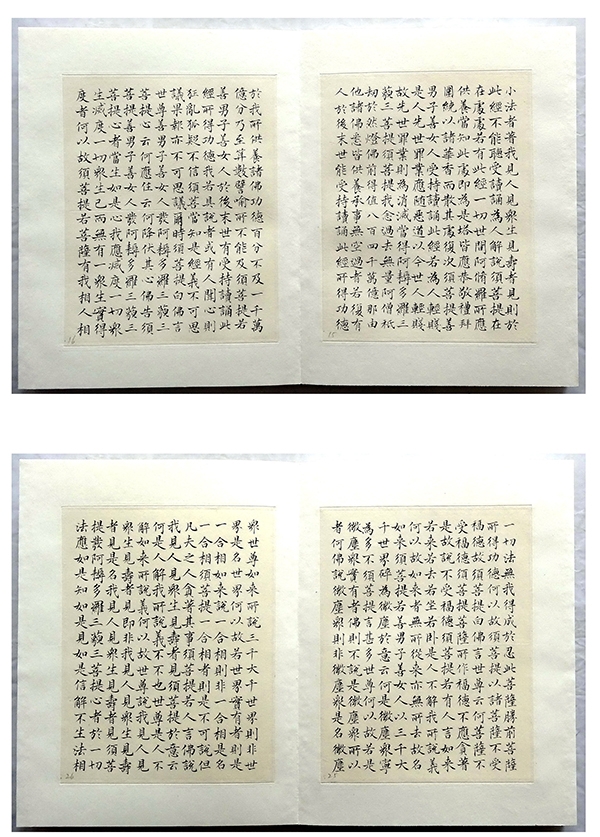 小法者著我見人見眾生見壽者見則於
此經不能聽受讀誦為人解說須菩提在
在處處若有此經一切世間阿脩羅所應
供養當知此處即為是塔皆應恭敬禮拜
圍繞以諸華香而散其處復次須菩提善
男子善女人受持讀誦此經若為人輕賤
是人先世罪業應墮惡道以今世人輕賤
故先世罪業則為消滅當得阿耨多羅三
藐三菩提須菩提我念過去無量阿僧祇
劫於然燈佛前得值八百四千萬億那由
他諸佛悉皆供養承事無空過者若復有
人於後末世能受持讀誦此經所得功德
15
於我所供養諸佛功德百分不及一千萬
億分乃至算數譬喻所不能及須菩提若
善男子善女人於後末世有受持讀誦此
經所得功德我若具說者或有人聞心則
狂亂狐疑不信須菩提當知是經義不可思
議果報亦不可思議爾時須菩提白佛言
世尊善男子善女人發阿耨多羅三藐三
菩提心云何應住云何降伏其心佛告須
菩提善男子善女人發阿耨多羅三藐三
菩提心者當生如是心我應滅度一切眾
生滅度一切眾生已而無有一眾生實得
度者何以故須菩提若菩薩有我相人相
16
一切法無我得成於忍此菩薩勝前菩薩
所得功德何以故須菩提以諸菩薩不受
福德故須菩提白佛言世尊云何菩薩不
受福德須菩提菩薩所作福德不應貪著
是故說不受福德須菩提若有人言如來
若來若去若坐若臥是人不解我所說義
何以故如來者無所從來亦無所去故名
如來須菩提若善男子善女人以三千大
千世界碎為微塵於意云何是微塵眾寧
為多不須菩提言甚多世尊何以故若是
微塵眾實有者佛則不說是微塵眾所以
者何佛說微塵眾則非微塵眾是名微塵
25
眾世尊如來所說三千大千世界則非世
界是名世界何以故若世界實有者則是
一合相如來說一合相則非一合相是名
一合相須菩提一合相者則是不可說但
凡夫之人貪著其事須菩提若人言佛說
我見人見眾生見壽者見須菩提於意云
何是人解我所說義不不也世尊是人不
解如來所說義何以故世尊說我見人見
眾生見壽者見即非我見人見眾生見壽
者見是名我見人見眾生見壽者見須菩
提發阿耨多羅三藐三菩提心者於一切
法應如是知如是見如是信解不生法相
26